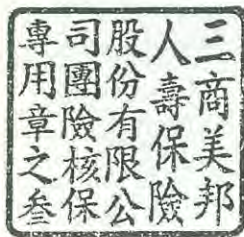 三商美邦
人壽保險
股份有限公
司團險核保
專用章之叁